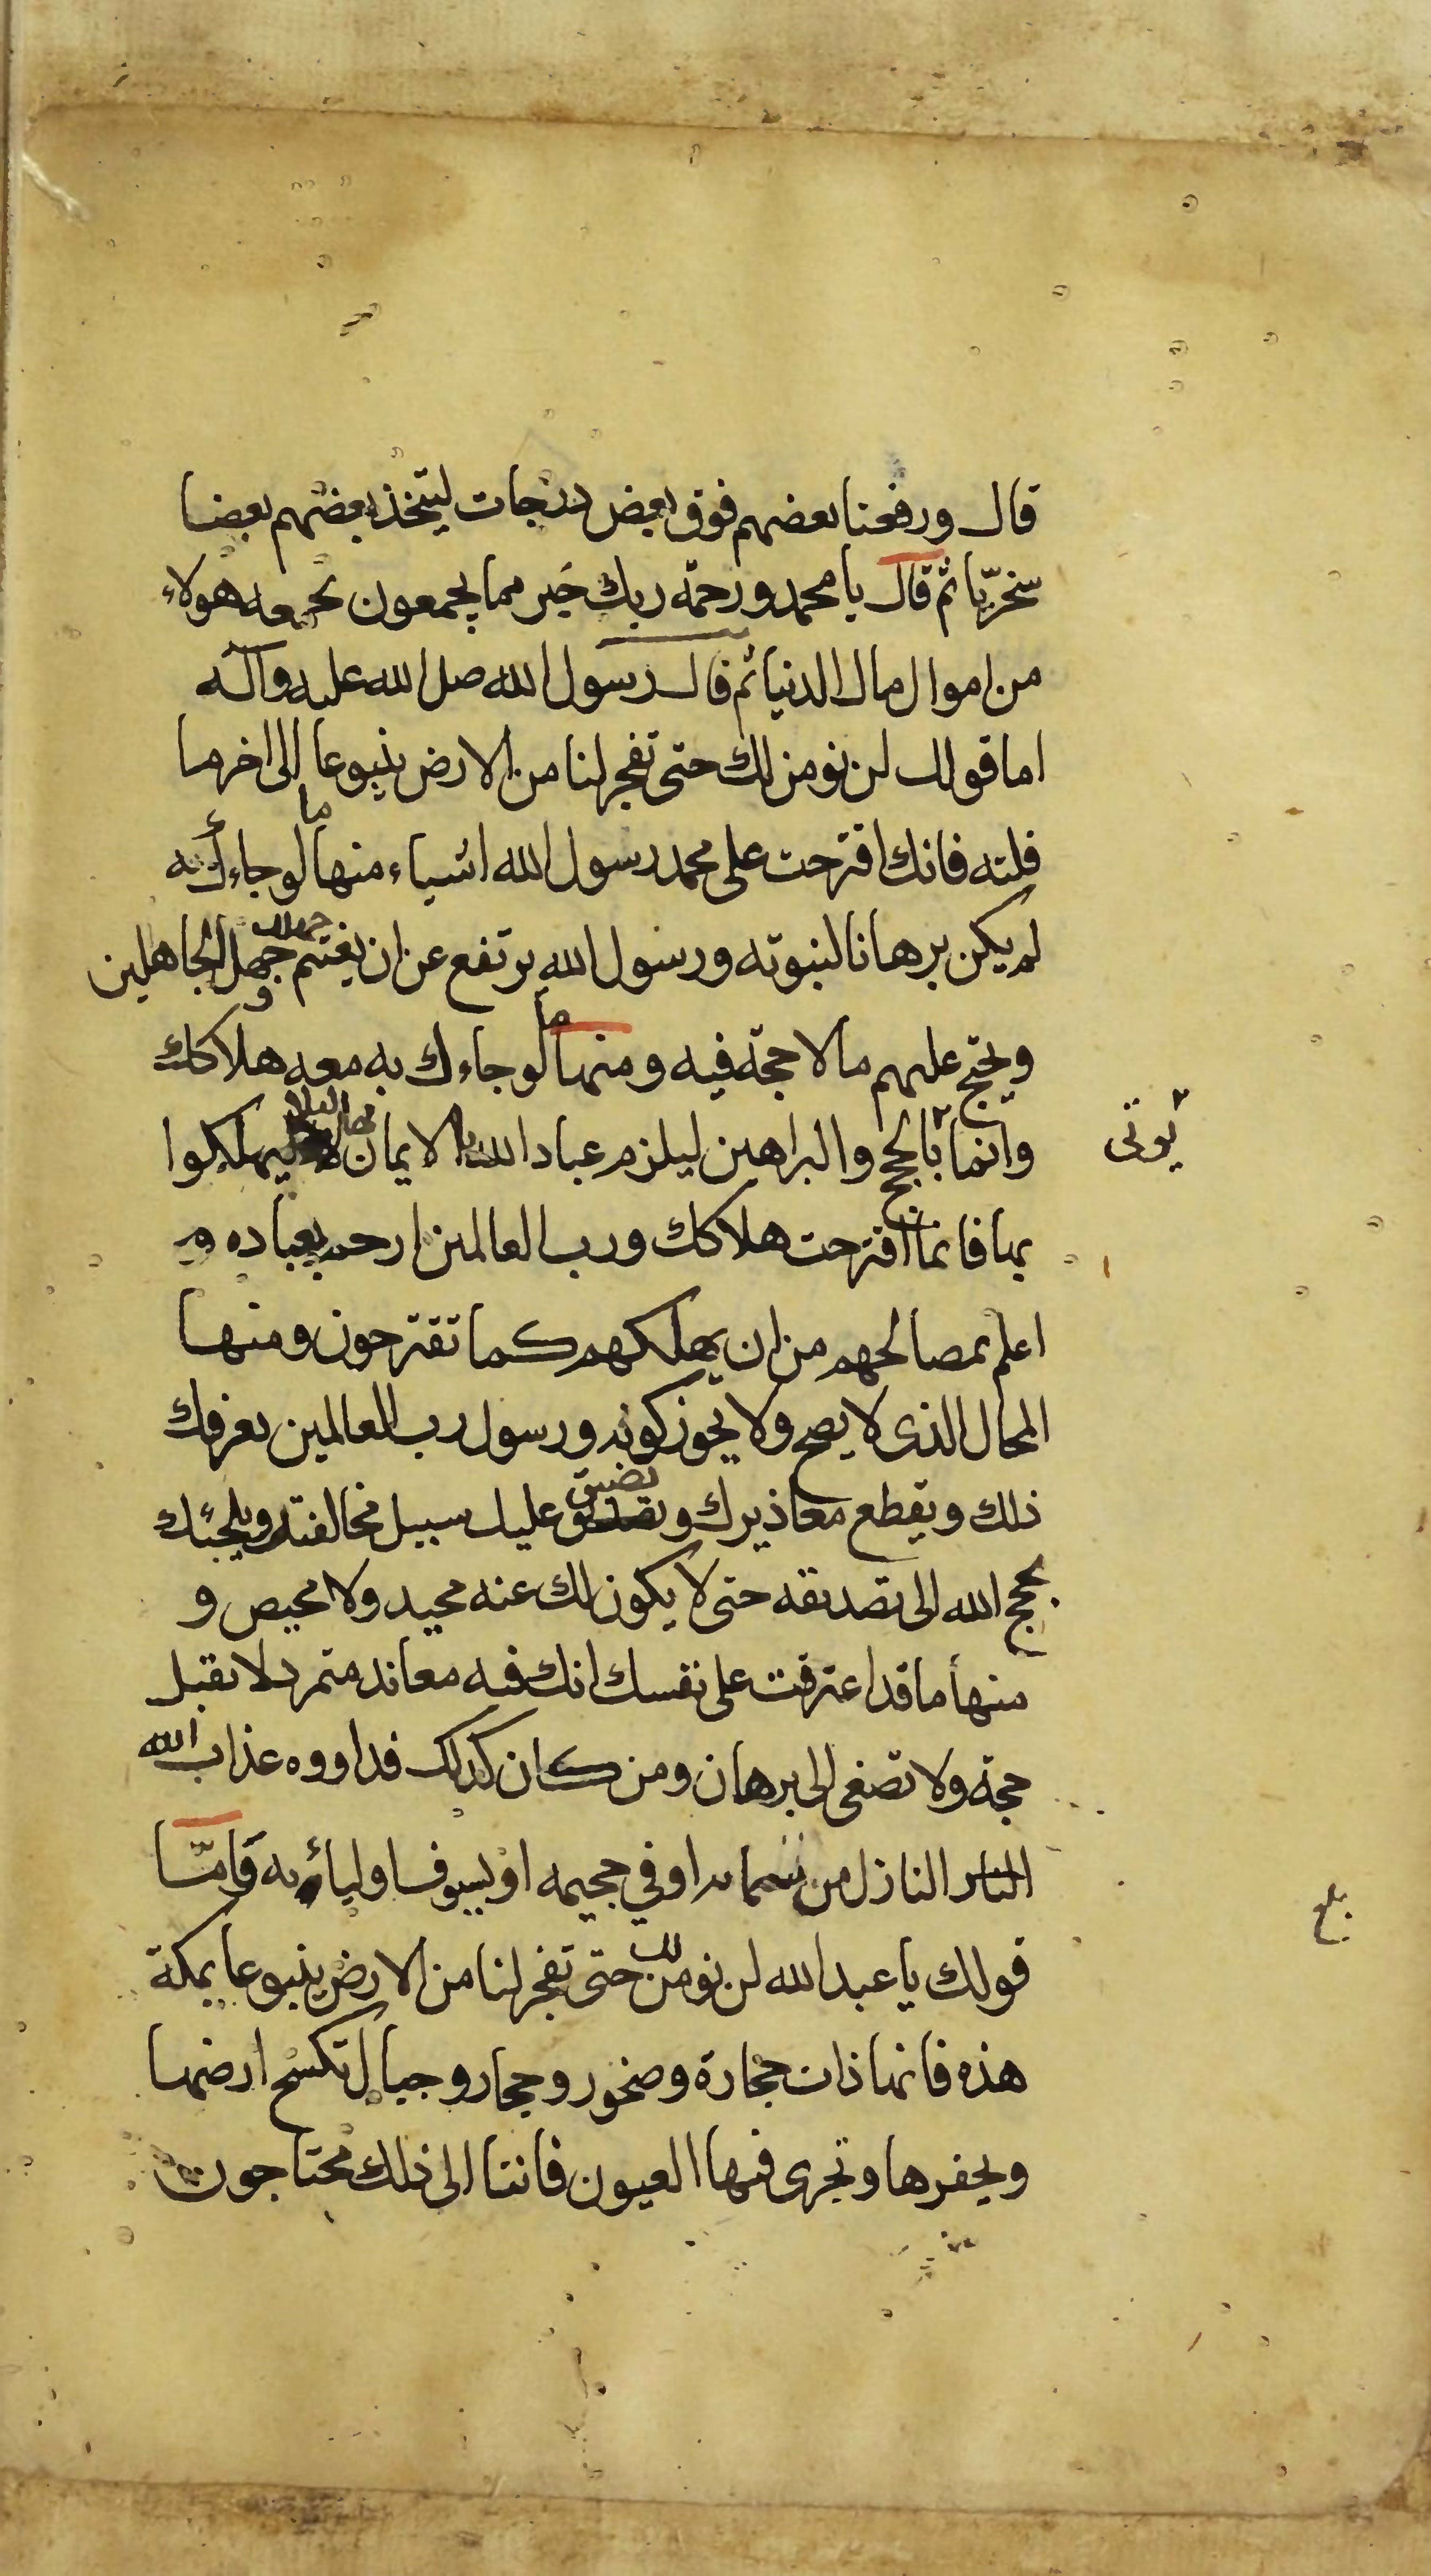 قال ورفعنا بعضهم فوق بعض درجات ليتخذ بعضهم بعضا
سخريّا ثم قال يا محمد ورحمة ربك خير مما يجمعون يجمعه هولاء
من اموال مال الدنيا ثم قال رسول الله صل الله عليه وآله
اما قولك لن نومن لك حتى تفجر لنا من الارض ينبوعا الى اخر ما
قلته فانك اقترحت على محمد رسول الله اشياء منها ما لو جاءك به
لم يكن برهانا لنبوته ورسول الله يرتفع عن ان يغتنم جهل الجاهلين
ويحتج عليهم بما لا حجة فيه ومنها ما لو جاءك به معه هلاكك
وانما يوتى بالحجج والبراهين ليلزم عباد الله الايمان بها لئلا يهلكوا
بها فانما اقترحت هلاكك ورب العالمين ارحم بعباده و
اعلم بمصالحهم من ان يهلكهم كما تقترحون ومنها
المحال الذى لا يصح ولا يجوز كونه ورسول رب العالمين يعرفك
ذلك ويقطع معاذيرك ويضيق عليك سبيل مخالفته ويلجئك
بحجج الله الى تصديقه حتى لا يكون لك عنه محيد ولا محيص و
منها ما قد اعترفت على نفسك انك فيه معاند متمرد لا تقبل
حجة ولا تصغى الى برهان ومن كان كذلك فداووه عذاب الله
النار النازل من سمائه او في جحيمه او بسيوف اوليائه به فامّا
قولك يا عبد الله لن نومن لك حتى تفجر لنا من الارض ينبوعا بمكة
هذه فانها ذات حجارة وصخور وحجار وجبال تكسح ارضها
ويحفرها وتجرى فيها العيون فاننا الى ذلك محتاجون
يوتى
بلغ